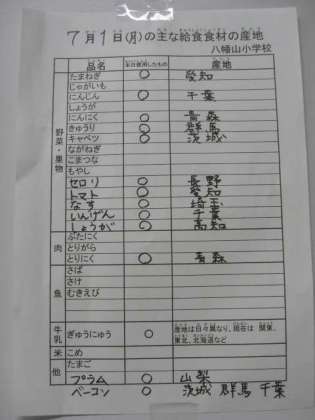 7月1日(月)の主な給食食材の産地
八幡山小学校
品名 本日使用したもの 産地
野菜・果物
たまねぎ ○ 愛知
じゃがいも
にんじん ○ 千葉
しょうが
にんにく ○ 青森
きゅうり ○ 群馬
キャベツ ○ 茨城
ながねぎ
こまつな
もやし
セロリ ○ 長野
トマト ○ 愛知
なす ○ 埼玉
いんげん ○ 千葉
しょうが ○ 高知
肉
ぶたにく
とりがら
とりにく ○ 青森
魚
さば
さけ
むきえび
牛乳 ぎゅうにゅう ○ 産地は日々異なり、現在は 関東、
東北、北海道など
米 こめ
他
たまご
プラム ○ 山梨
ベーコン ○ 茨城 群馬 千葉